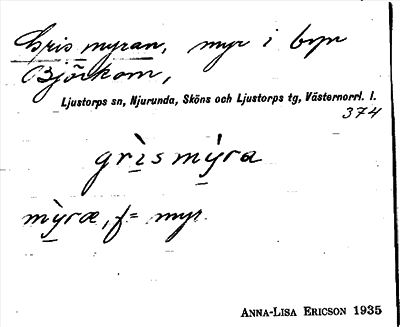 Grismyran, myr i byn
Björkom,
Ljustorps sn, Njurunda, Sköns och Ljustorps tg, Västernorrl. l.
374
grìsmỳra
mỳræ, f = myr.
ANNA-LISA ERICSON 1935